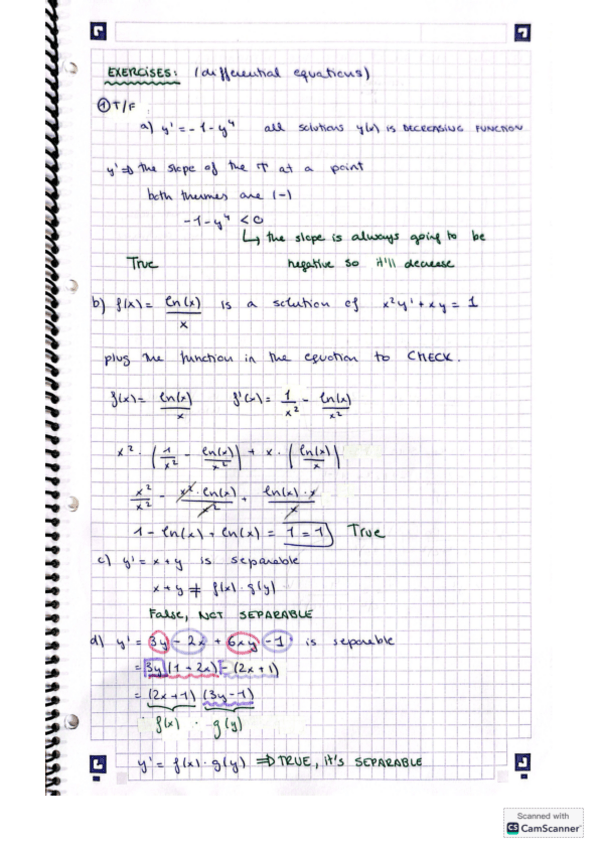 EXERCISES: (differential equations)
① T/F
a) y' = -1-y⁴ all solutions y(x) is DECREASING FUNCTION
y' ⇒ the slope of the T at a point
both thermes are (-)
-1-y⁴ < 0
↳ the slope is always going to be
True negative so it'll decrease
b) f(x) = ln(x)/x is a solution of x²y' + xy = 1
plug the function in the equation to CHECK.
f(x) = ln(x)/x f'(x) = 1/x² - ln(x)/x²
x² · (1/x² - ln(x)/x²) + x · (ln(x)/x)
x²/x² - x²·ln(x)/x² + ln(x)·x/x
1 - ln(x) + ln(x) = 1 = 1 True
c) y' = x + y is separable
x + y ≠ f(x) · g(y)
False, NOT SEPARABLE
d) y' = 3y - 2x + 6xy - 1 is separable
= 3y (1 + 2x) - (2x + 1)
= (2x + 1) (3y - 1)
f(x) · g(y)
y' = f(x) · g(y) ⇒ TRUE, it's SEPARABLE
Scanned with
CS CamScanner